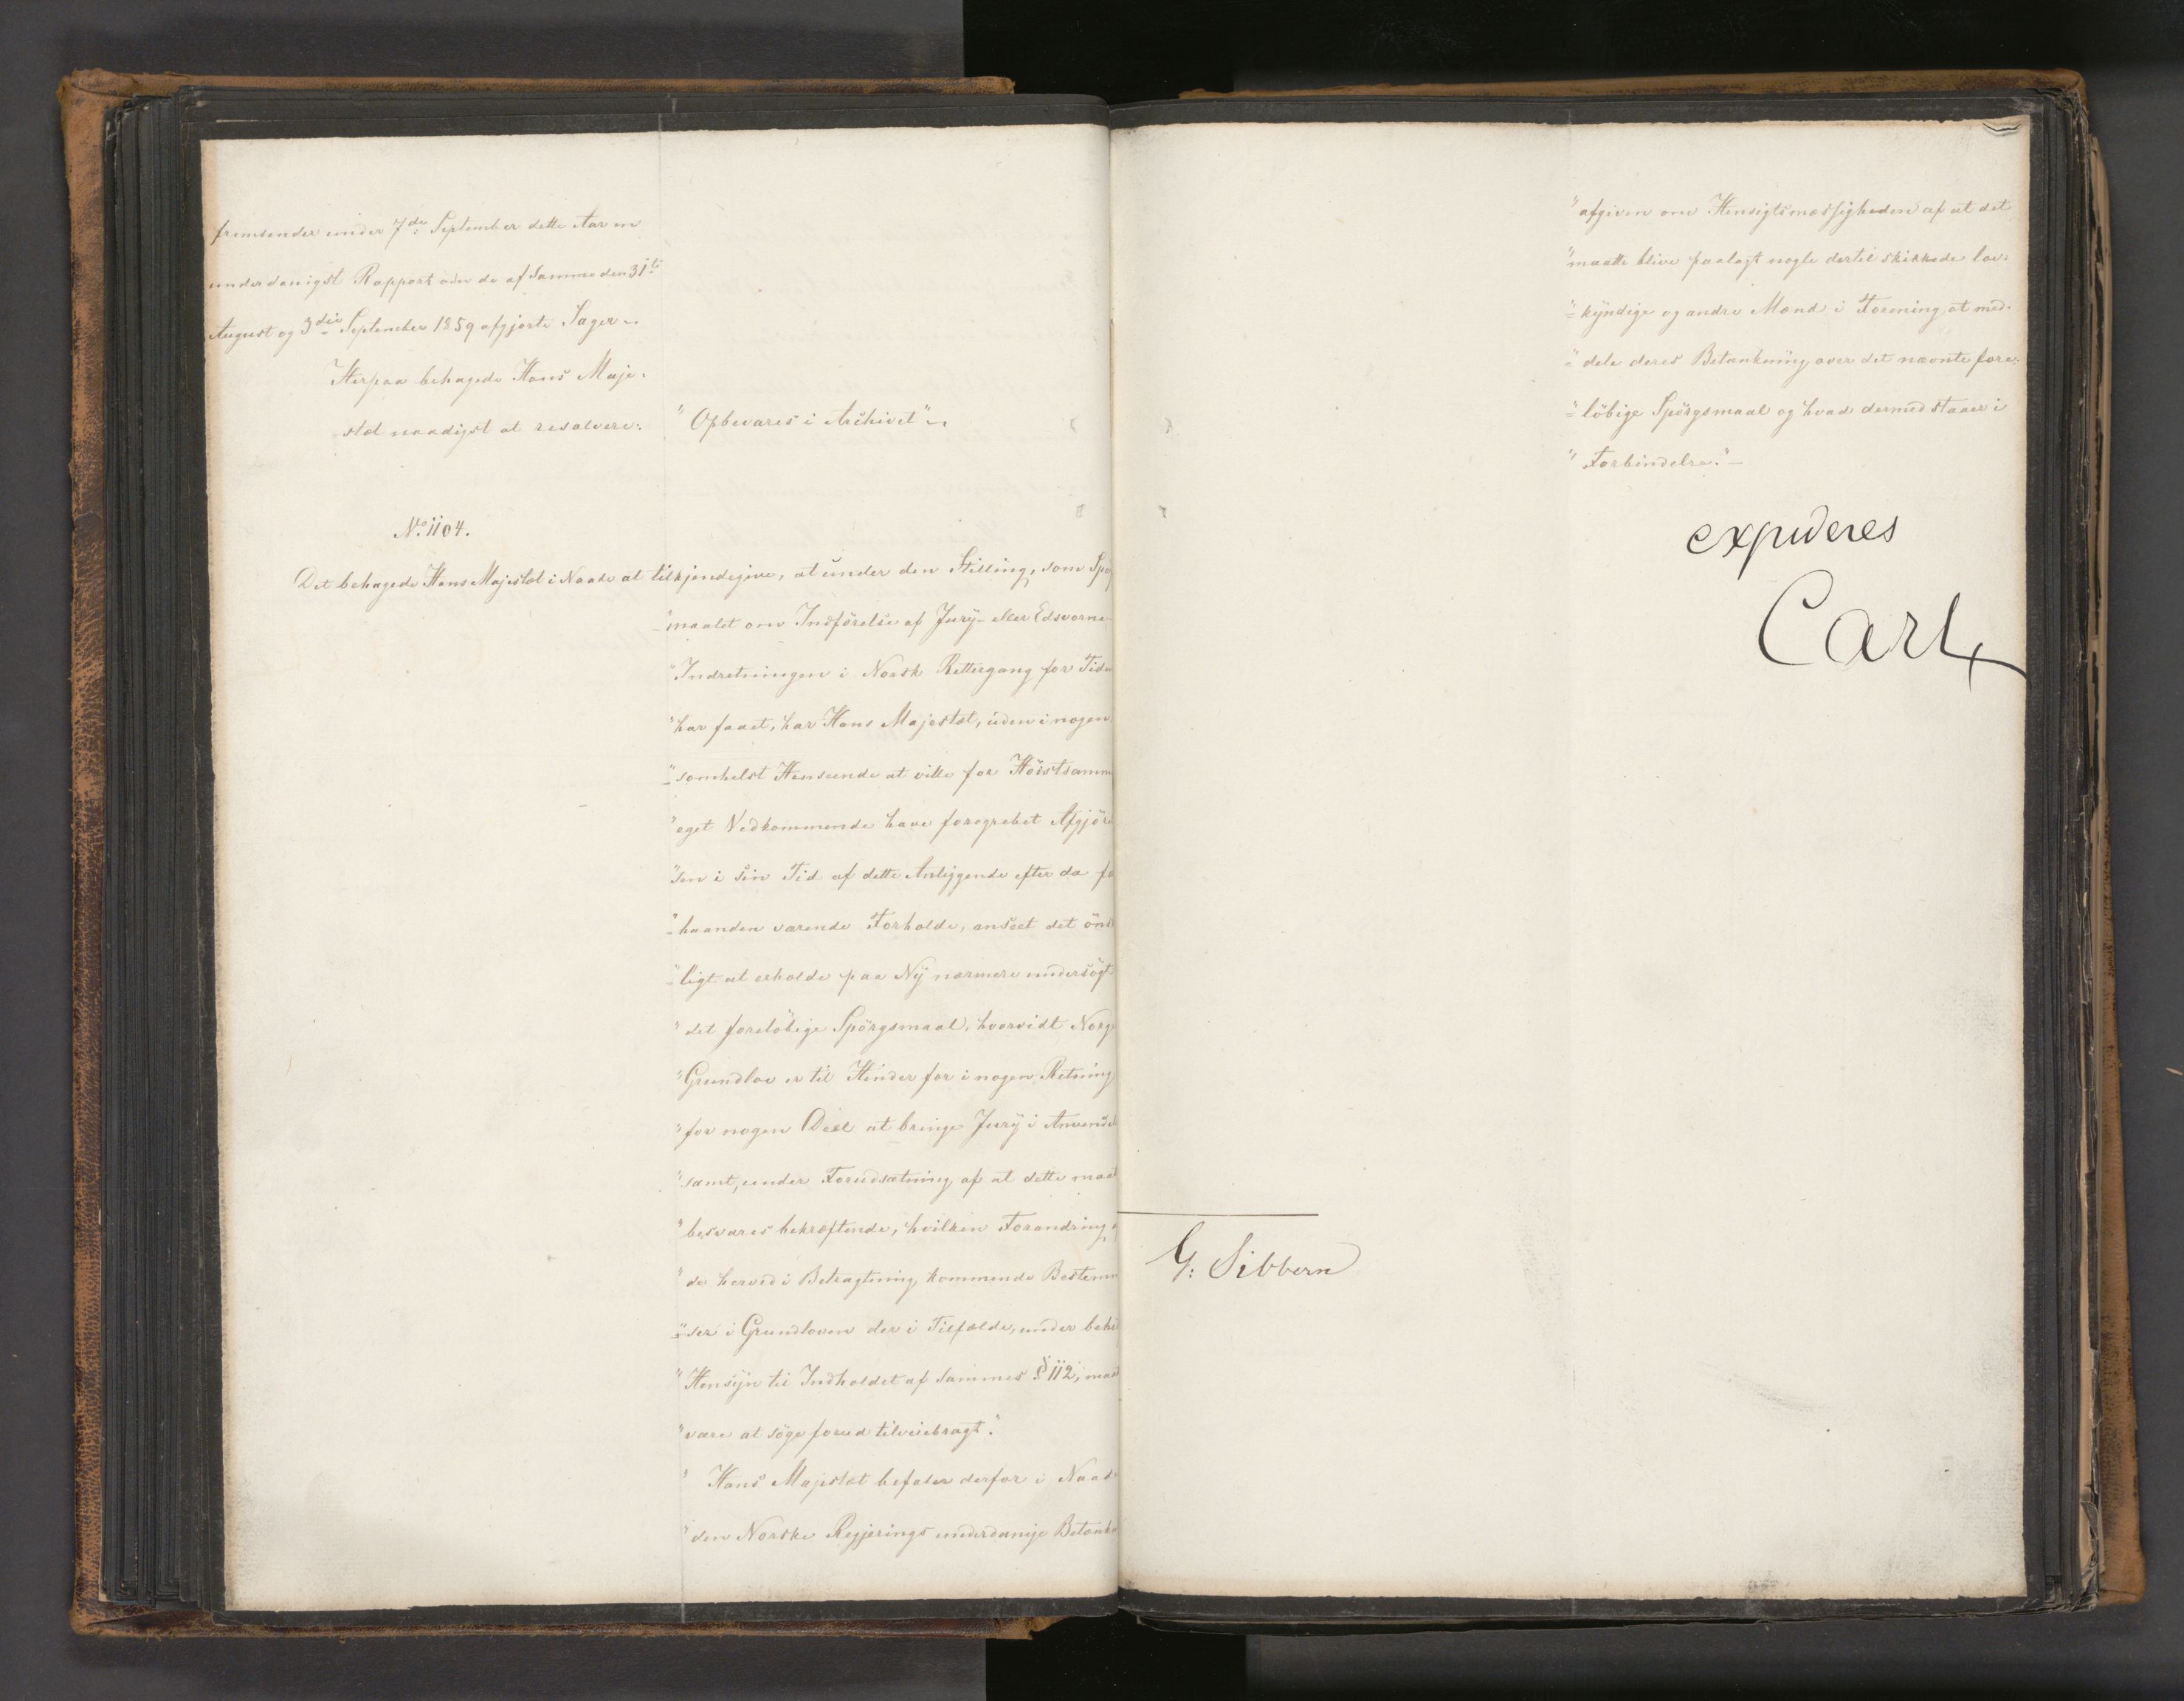 fremsender under 7de September dette Aar en
underdanigst Rapport om de af Samme den 31te
August og 3die September 1859 afgjorte Sager.
Herpaa behagede Hans Maje-
stæt naadigst at resolvere:
"Opbevares i Archivet".
No. 1104.
Det behagede Hans Majestæt i Naade at tilkjendegive, at under den Stilling, som Spø
"maalet om Indförelse af Jury- eller Edsvorne-
"Indretningen i Norsk Rettergang for Tiden
"har faaet, har Hans Majestæt, uden i nogen
"somhelst Henseende at ville for Höistsamme
"eget Vedkommende have foregrebet Afgjörel
"sen i sin Tid af dette Anliggende efter da fo
"haanden værende Forholde, anseet det önsk
"ligt at erholde paa Ny nærmere undersögt
"det forelöbige Spörgsmaal, hvorvidt Norges
"Grundlov er til Hinder for i nogen Retning
"for nogen Deel at bringe Jury i Anvendel
"samt, under Forudsætning af at dette maat
"besvares bekræftende, hvilken Forandring
"de herved i Betragtning kommende Bestemm
"ser i Grundloven der i Tilfælde, under behö
"Hensyn til Indholdet af Sammes § 112, maat
"være at söge forud tilveiebragt".
"Hans Majestæt befaler derfor i Naade
"den Norske Regjerings underdanige Betænkn
"afgiven om Hensigtsmæssigheden af at det
"maatte blive paalagt nogle dertil skikkede lov-
"kyndige og andre Mænd i Forening at med-
"dele deres Betænkning over det nævnte fore-
"löbige Spörgsmaal og hvad dermed staaer i
"Forbindelse."
expideres
Carl
G: Sibbern